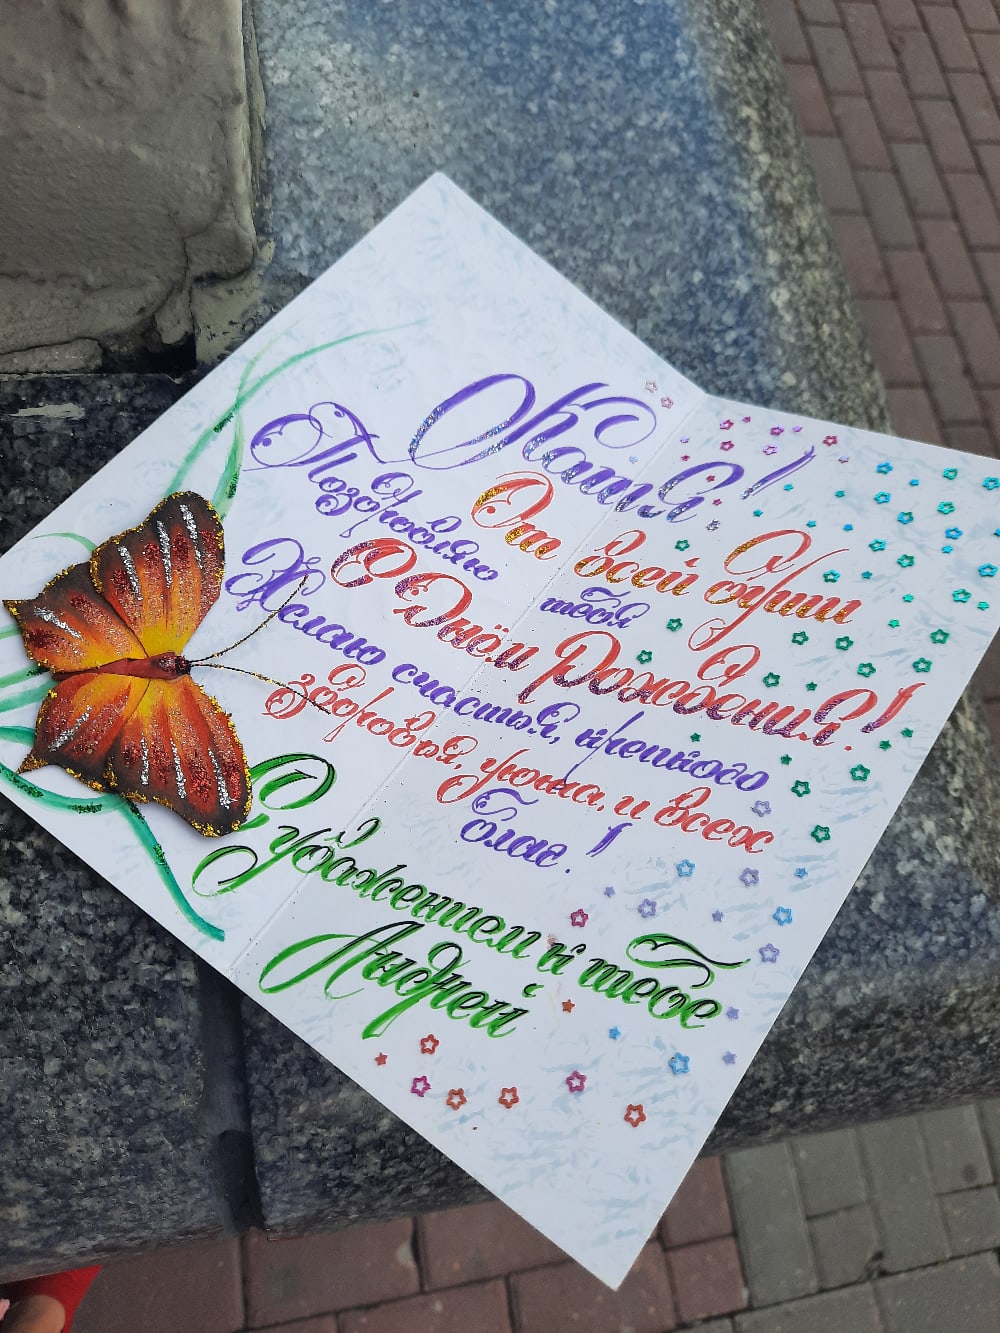 Катя!
От всей души
Поздровляю тебя
С Днём Рождения!
Желаю счастья, крепкого
здоровья, ума, и всех
благ!
С уважением к тебе
Андрей